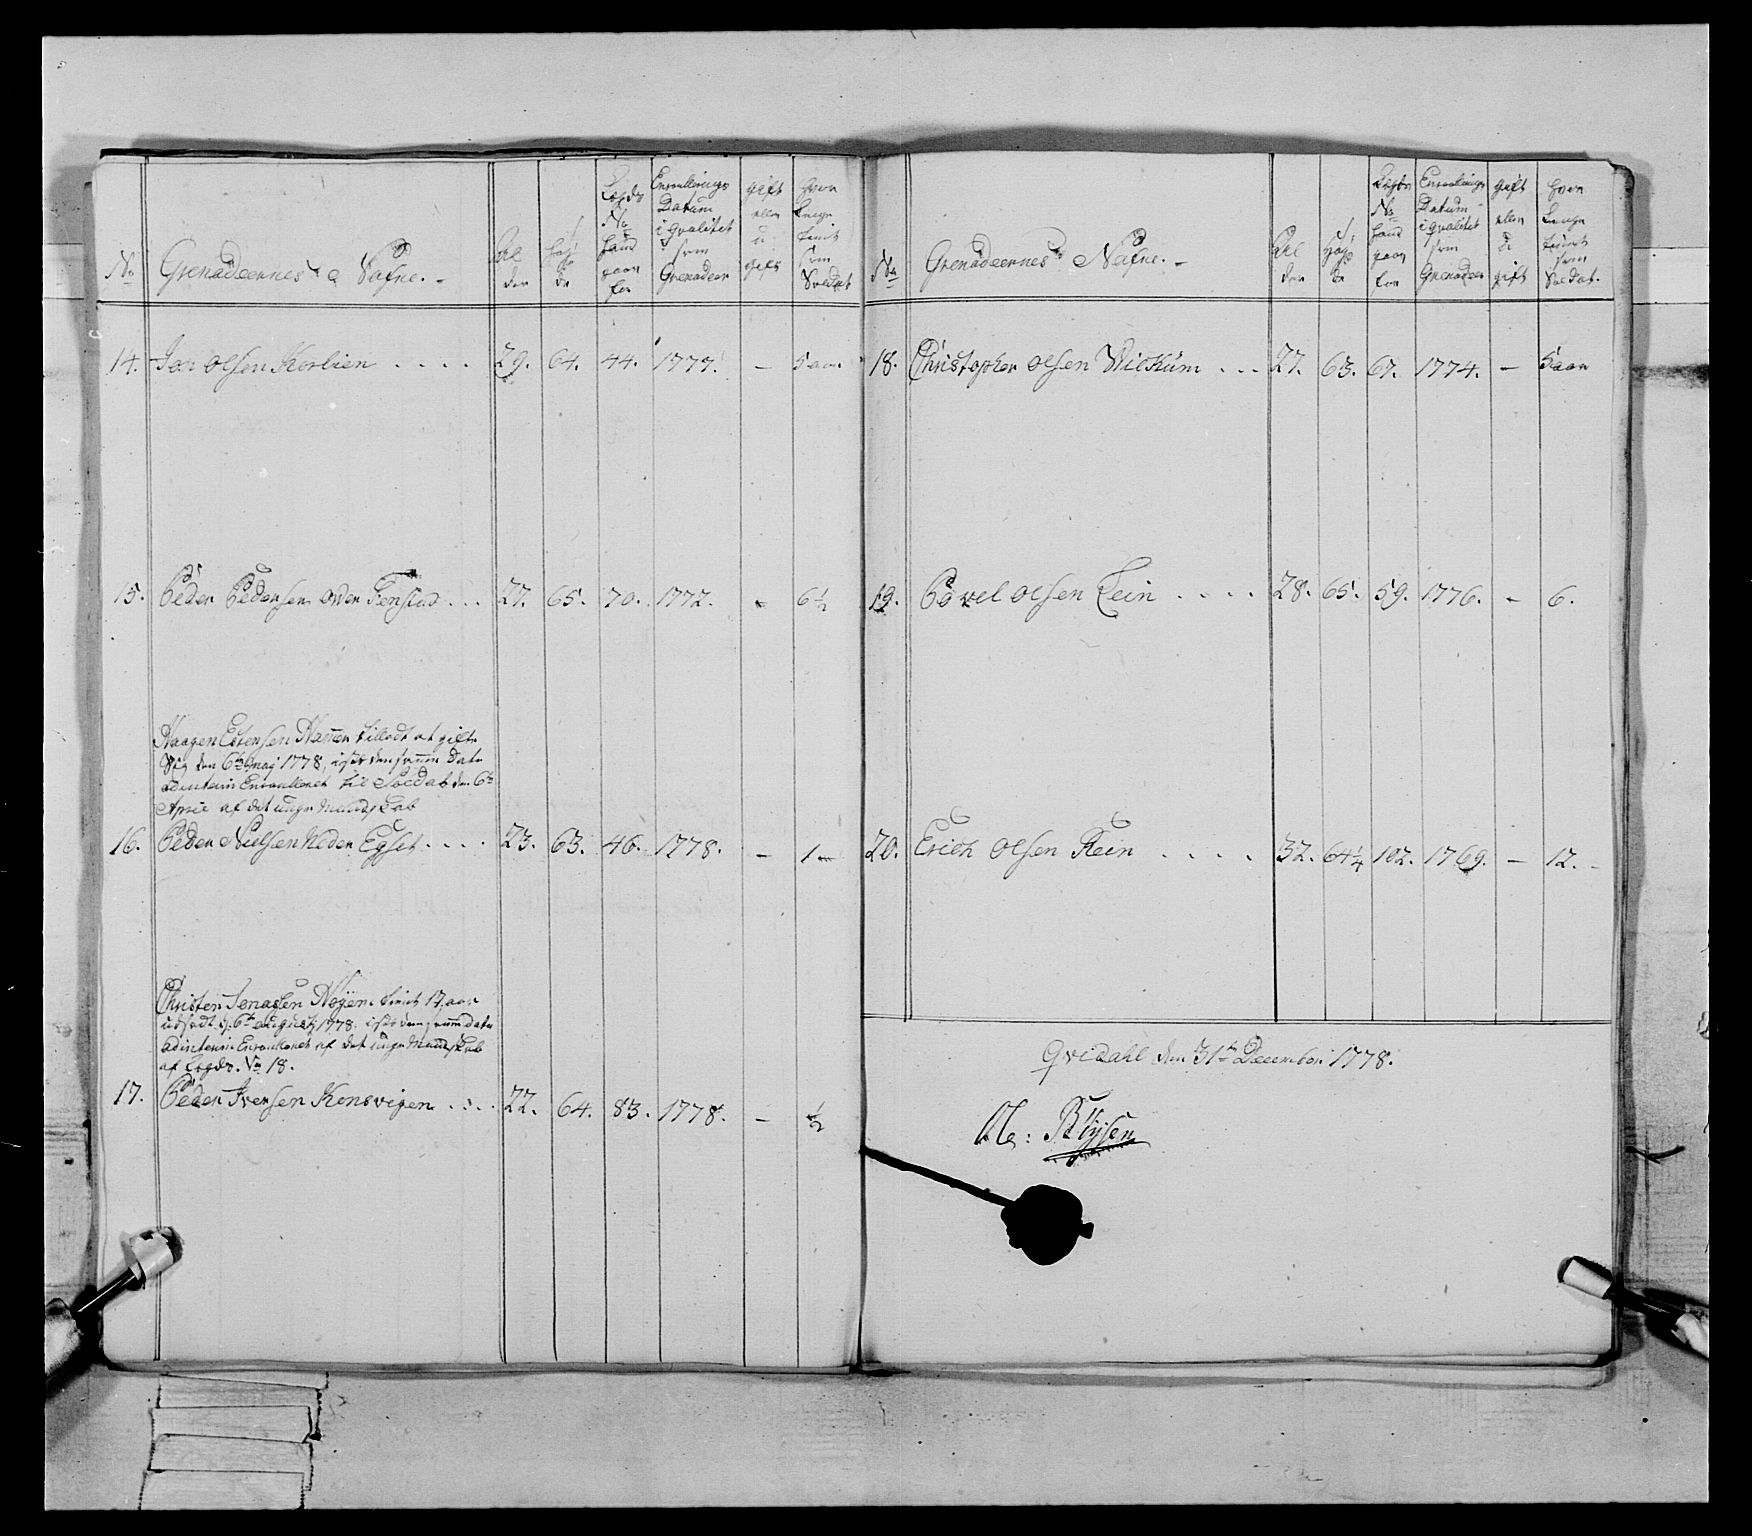 No Grenadeernes Nafne. Al der Høÿ de Legds No hand gaar for Enroullerings Datum i qvalitet som Grenadeer gift eller u- gift hvor lenge tient som Soldat
14. Jon Olsen Korlien .... 29. 64. 44. 1777. — 5 aar
15. Peder Pedersen over Fenstad ... 27. 65. 70. 1772. - 6½
Haagen Estensen tilladt at gifte
sig den 6te Maj 1778, den samme Dato
adinterim Enroulleret til Soldat den 6te
April af det unge Mandskab
16. Peder Nielsen Neder Egset .... 23. 63. 46. 1778. — 1
Christen Jonassen Moÿen tient 17 aar
udsadt d. 6te augustj 1778. den samme dato
adinterim Enroulleret af det unge Mandskab
af Legds No 18.
17. Peder Iversen Konsvigen .... 22. 64. 83. 1778. — ½
No Grenadeernes Nafne. - Al der Høÿ de Legds No hand gaar for Enroullerings Datum i qvalitet som Grenadeer gift eller u gift hvor lenge tient som Soldat.
18. Christopher Olsen Wilkum ... 27. 63. 67. 1774. — 5 aar
19. Povel Olsen Lein .... 28. 65. 59. 1776. - 6.
20. Erich Olsen Rein .... 32. 64¼ 102. 1769. — 12.
Qvidahl den 31te December 1778.